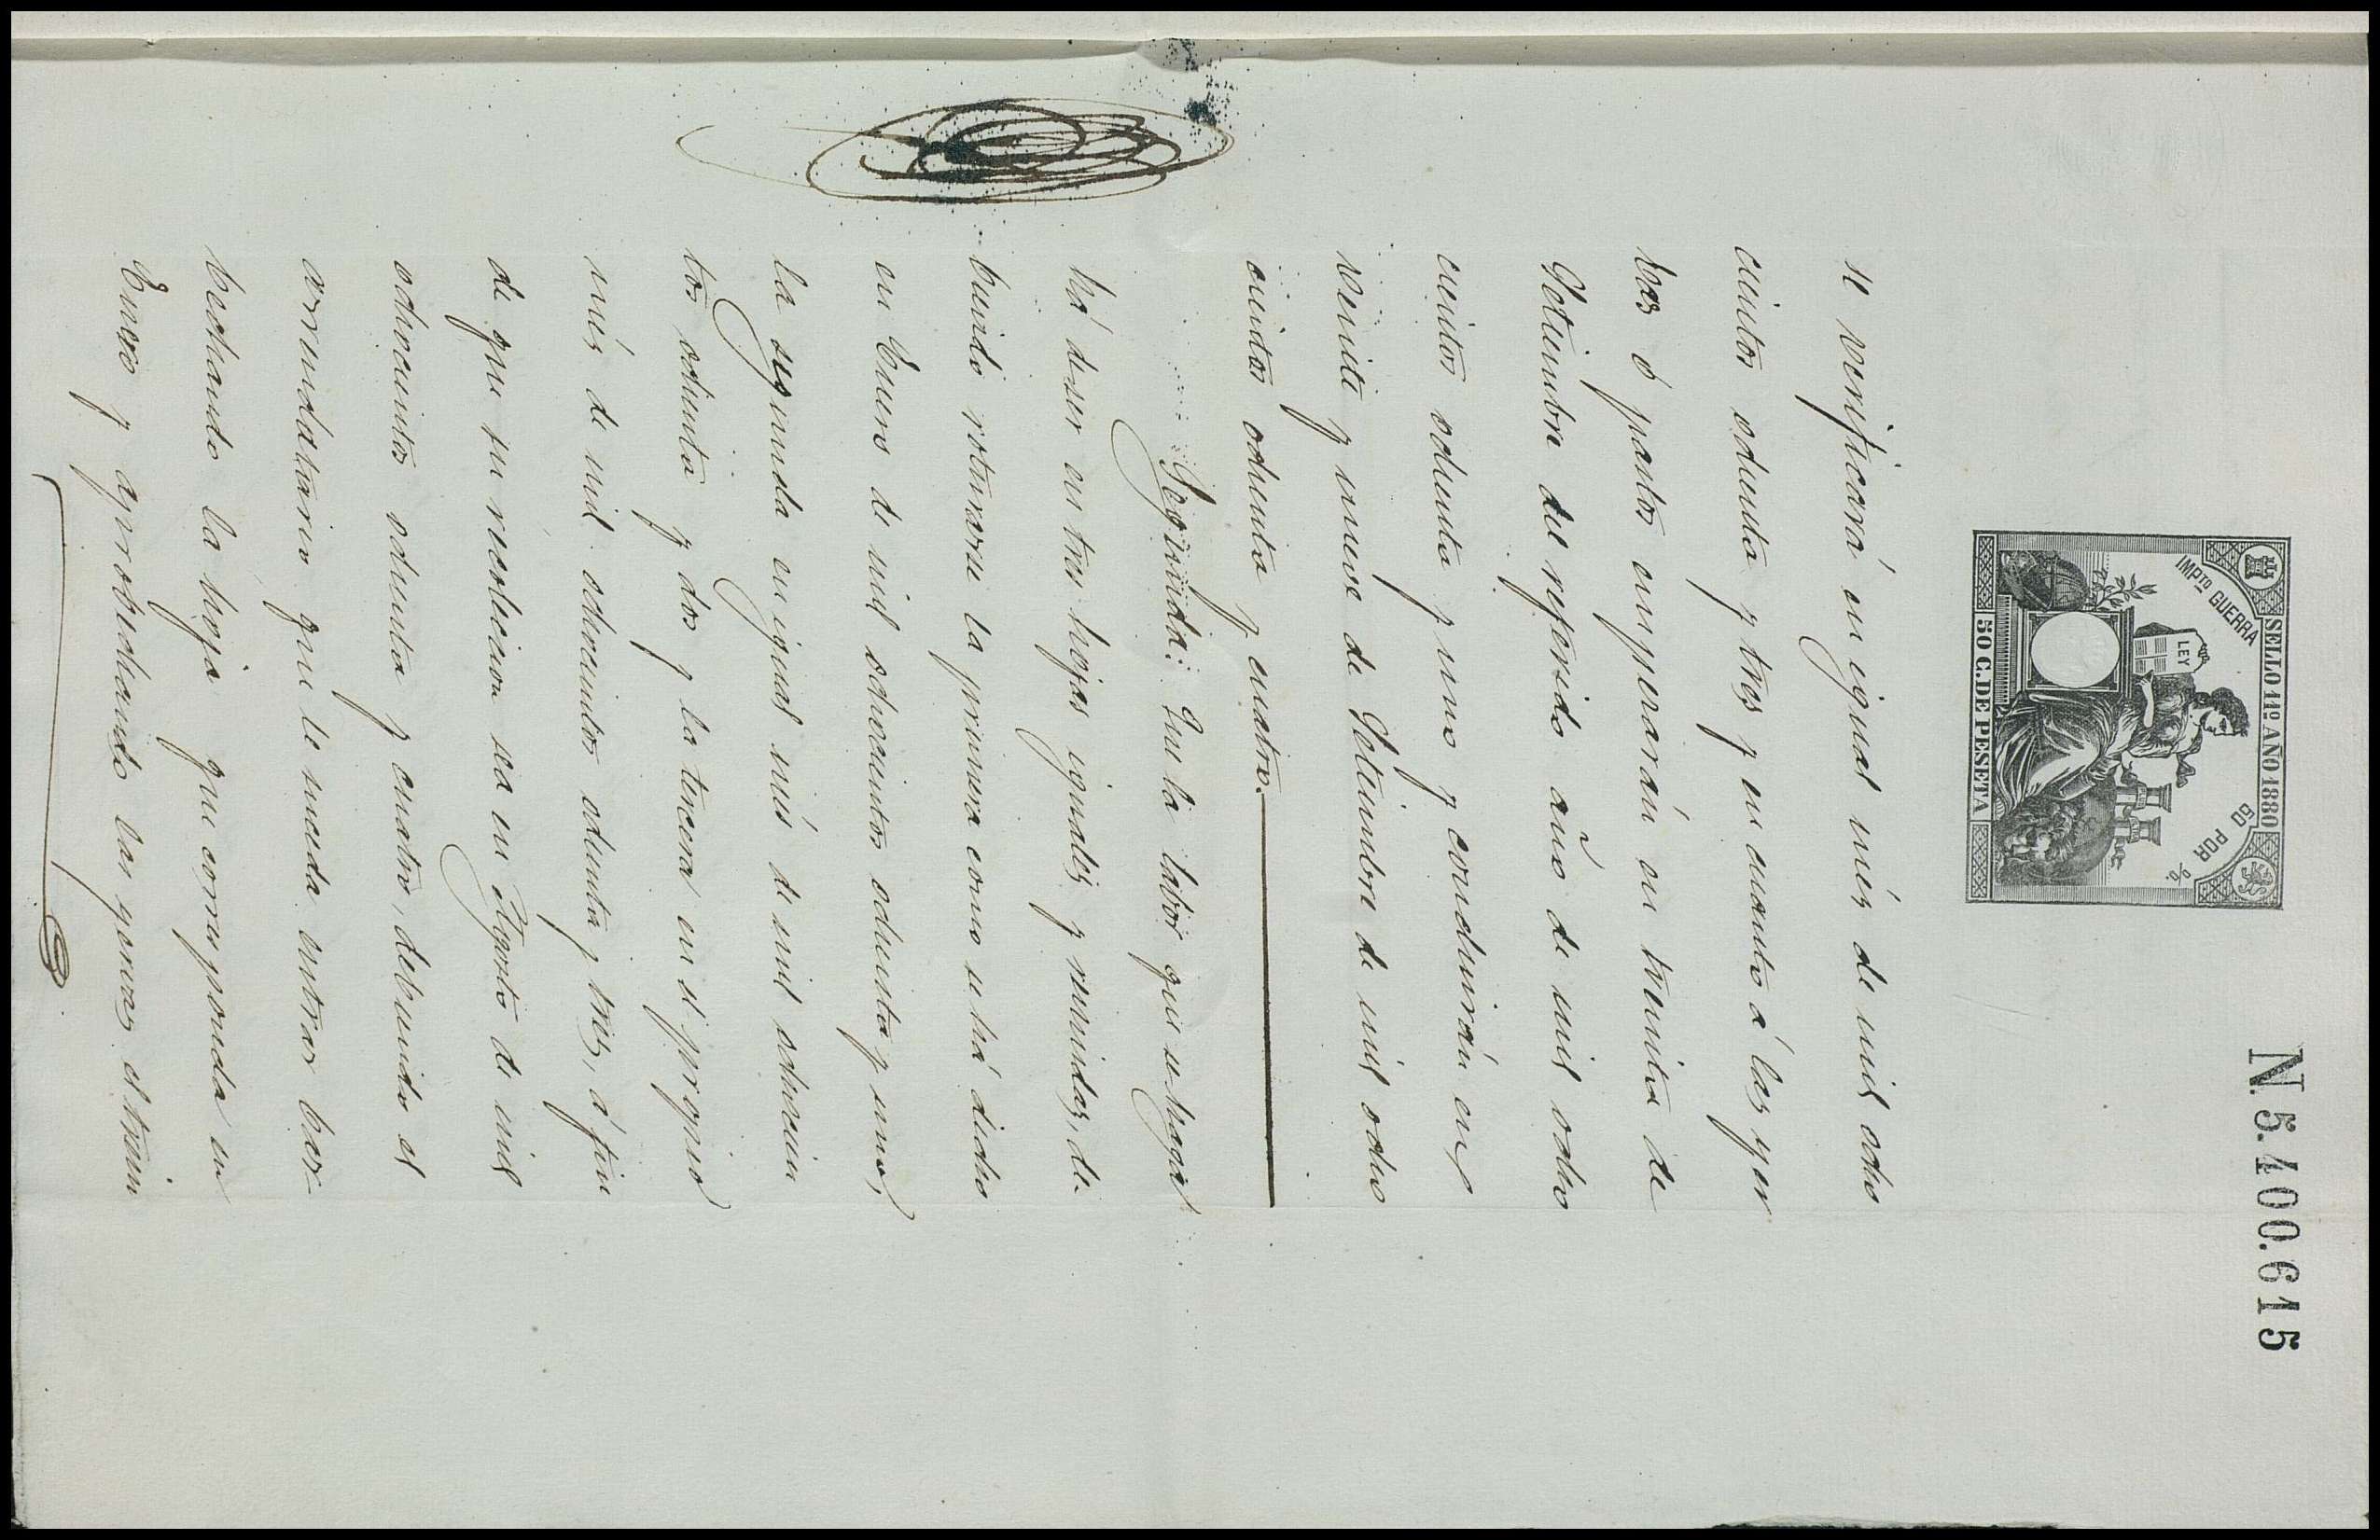 N. 5.400.615
SELLO 11º AÑO 1880
IMPTO GUERRA
50 POR %.
LEY
50 C. DE PESETA
se verificará en igual més de mil ocho
cientos ochenta y tres y en cuanto á las yer
bas ó pastos empezarán en treinta de
Setiembre del referido año de mil ocho
cientos ochenta y uno y concluirán en
veinte y nueve de Setiembre de mil ocho
cientos ochenta y cuatro.
Segunda: Que la labor que se haga
há de ser en tres hojas iguales y reunidas, de-
biendo roturarse la primera como se há dicho
en Enero de mil ochocientos ochenta y uno,
la segunda en igual més de mil ochocien
tos ochenta y dos y la tercera en el propio
més de mil ochocientos ochenta y tres, á fin
de que su recoleccion sea en Agosto de mil
ochocientos ochenta y cuatro, debiendo el
arrendatario que le suceda entrar bar-
bechando la hoja que corresponda en
Enero y aprobechando las yervas el trein